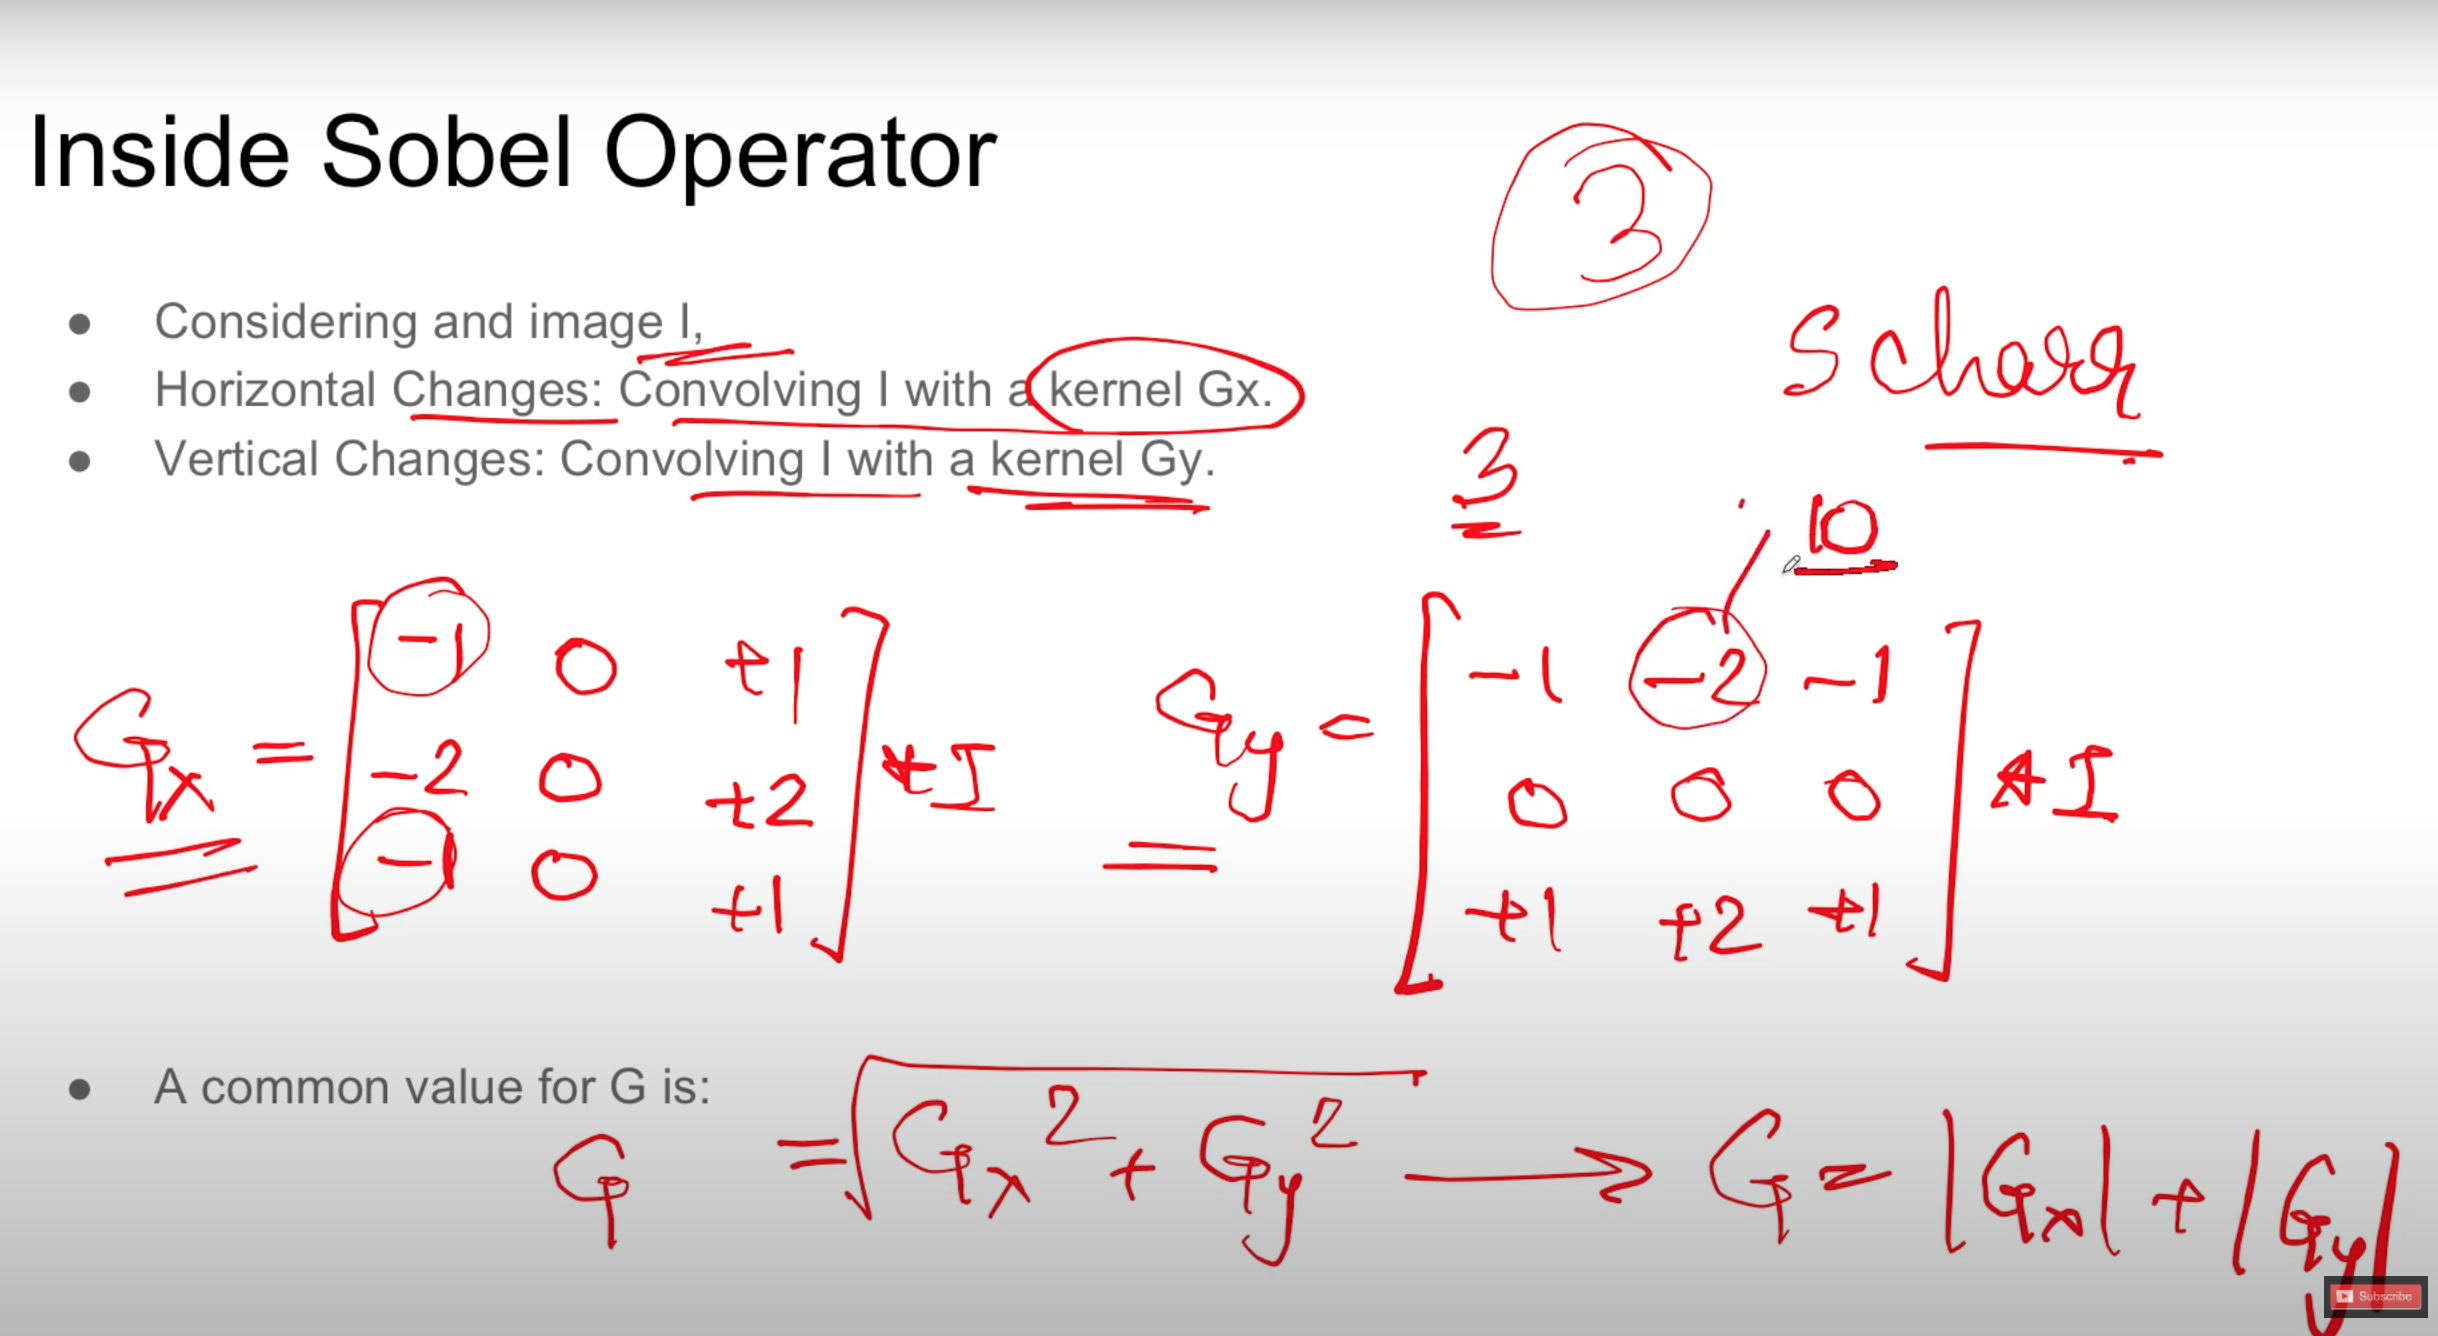 Inside Sobel Operator
3
Considering and image I,
Scharr
Horizontal Changes: Convolving I with a kernel Gx.
Vertical Changes: Convolving I with a kernel Gy.
3
10
Gx = [ -1 0 +1
-2 0 +2
-1 0 +1 ] * I
Gy = [ -1 -2 -1
0 0 0
+1 +2 +1 ] * I
A common value for G is:
G = √Gx² + Gy² → G = |Gx| + |Gy|
Subscribe